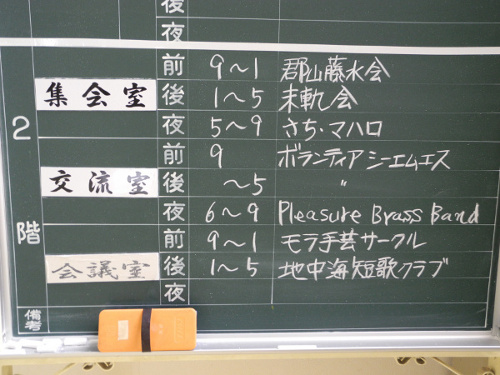 夜
2階
前 9〜1 郡山藤水会
集会室 後 1〜5 末軌会
夜 5〜9 さち・マハロ
前 9 ボランティアシーエムエス
交流室 後 〜5 〃
夜 6〜9 Pleasure Brass Band
前 9〜1 モラ手芸サークル
会議室 後 1〜5 地中海短歌クラブ
夜
備考